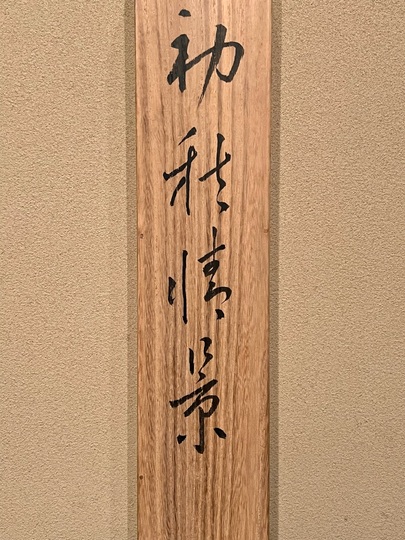 初秋情景